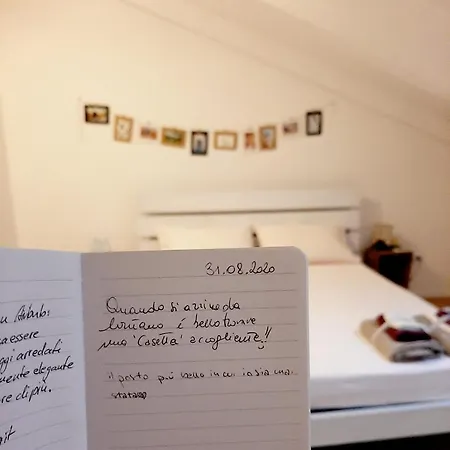 u Airbnb:
a essere
ggi arredati
mente elegante
re di più.
it
31.08.2020
Quando si arriva da
lontano è bello trovare
una "Casetta" accogliente!!
il posto più bello in cui io sia mai
stata